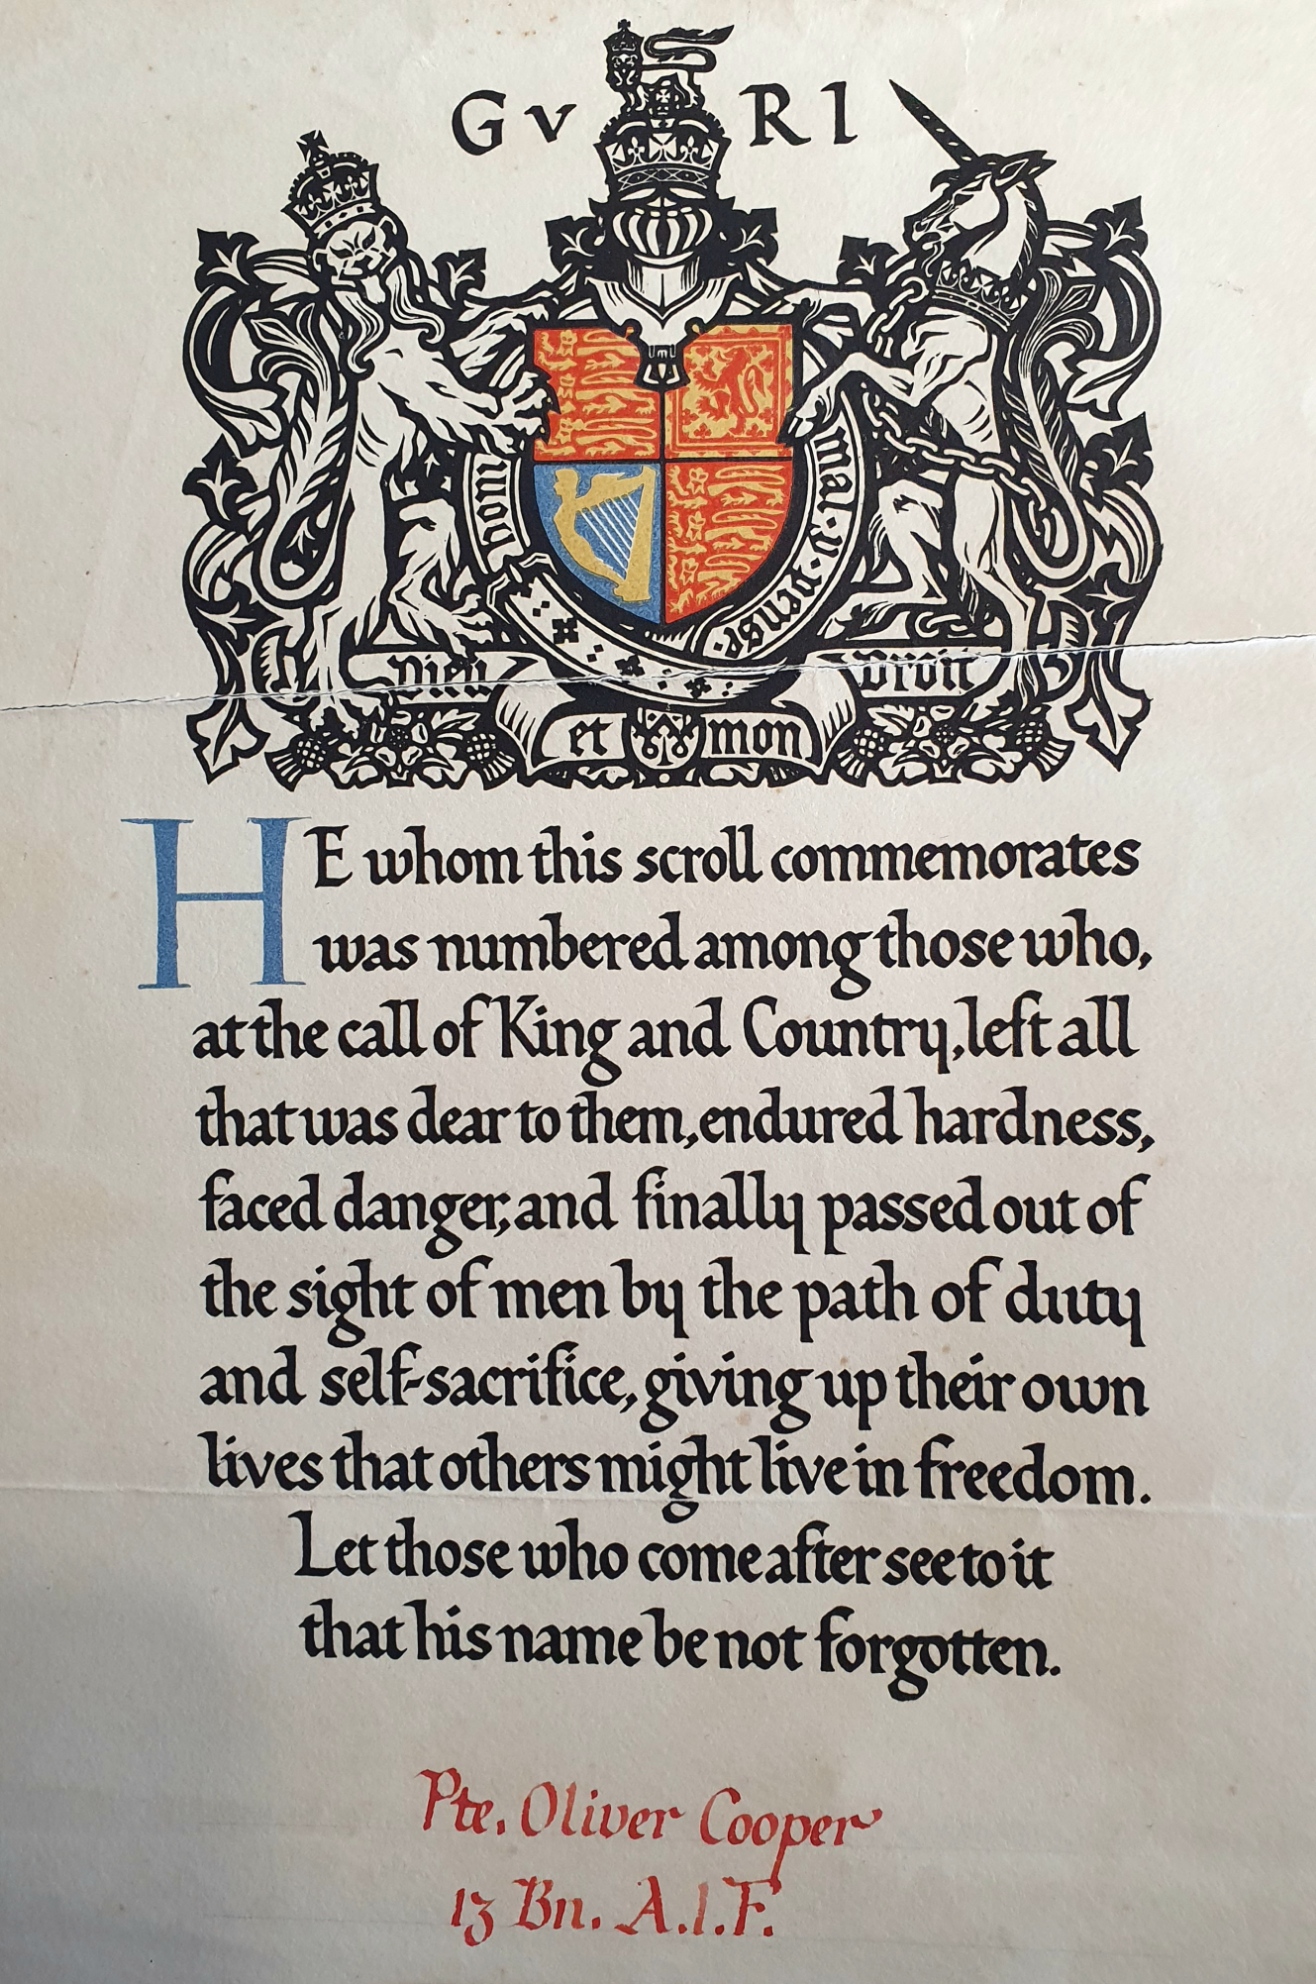 GV RI
honi
mal·y·pense
Dieu
Droit
et mon
HE whom this scroll commemorates
was numbered among those who,
at the call of King and Country, left all
that was dear to them, endured hardness,
faced danger, and finally passed out of
the sight of men by the path of duty
and self-sacrifice, giving up their own
lives that others might live in freedom.
Let those who come after see to it
that his name be not forgotten.
Pte. Oliver Cooper
13 Bn. A.I.F.